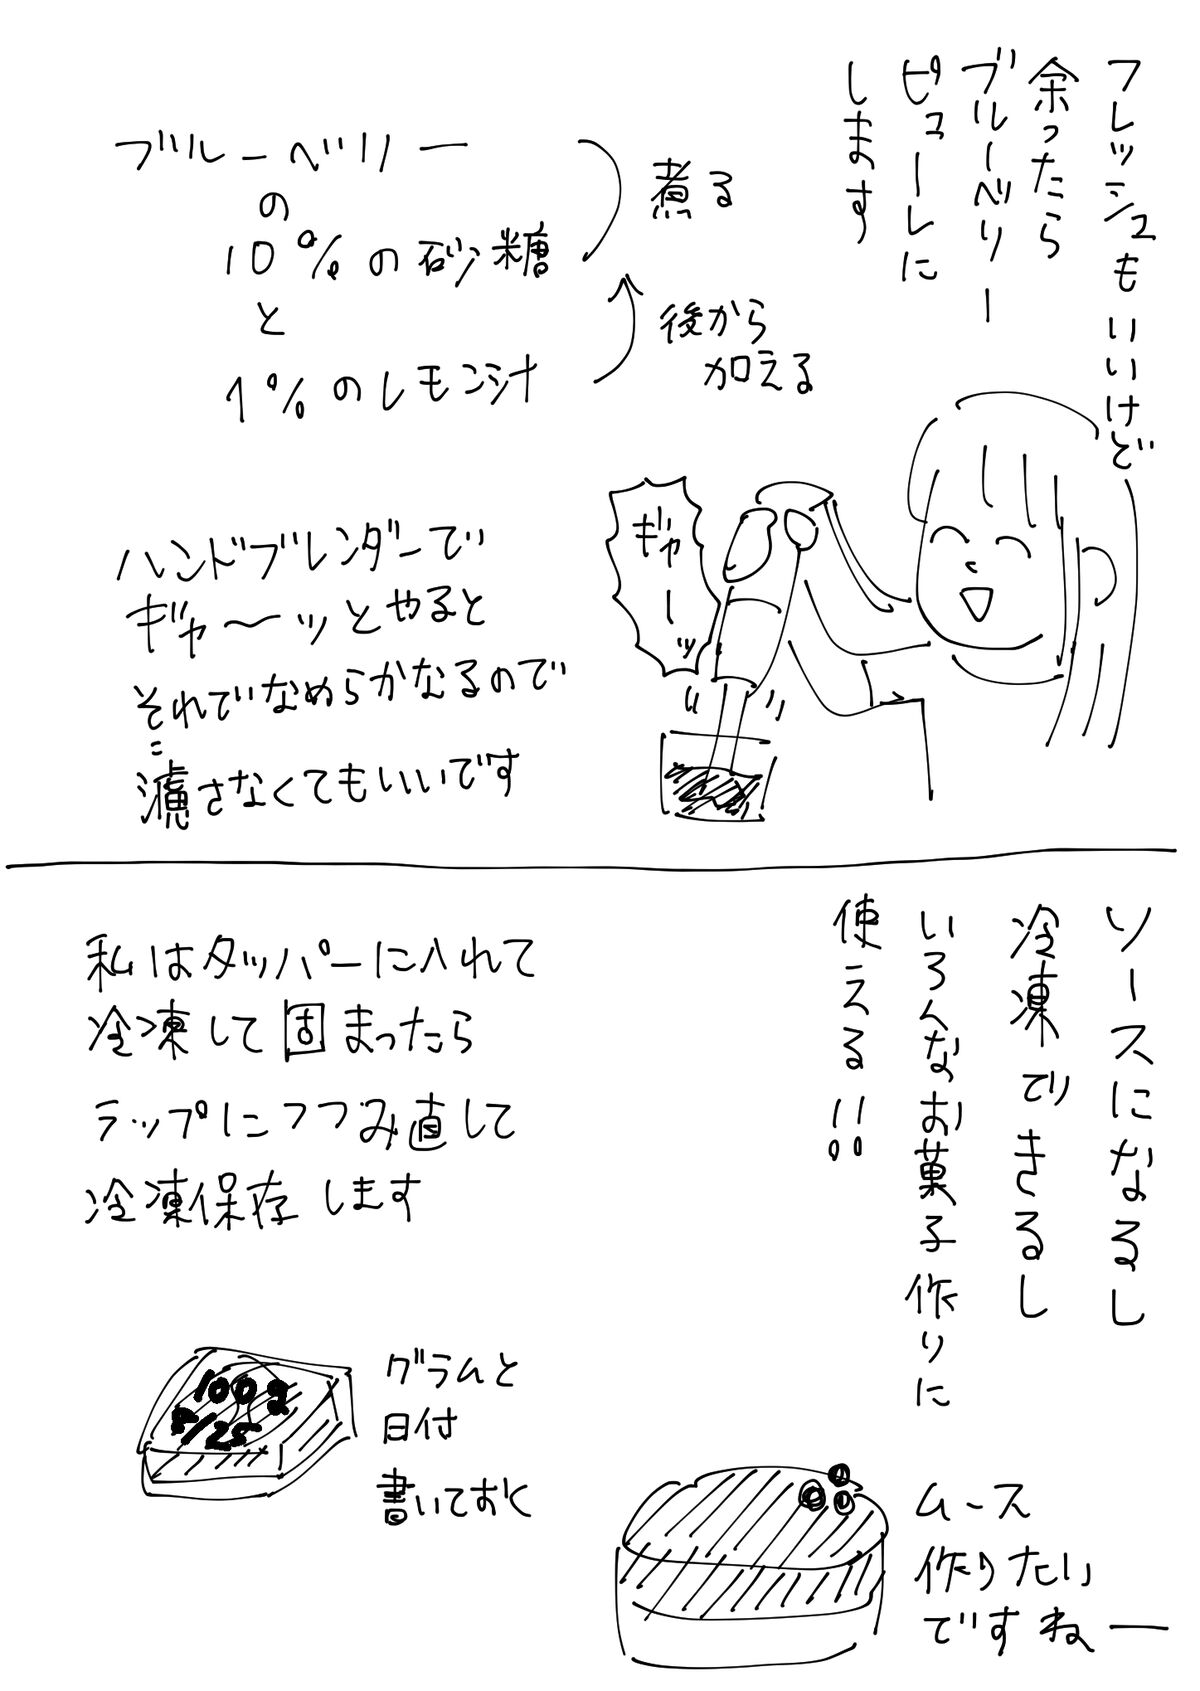 フレッシュもいいけど
余ったら
ブルーベリー
ピューレに
します
ブルーベリー
の
10%の砂糖
と
1%のレモン汁
煮る
後から
加える
ギャーッ
ハンドブレンダーで
ギャ〜ッとやると
それでなめらかなるので
こ
濾さなくてもいいです
ソースになるし
冷凍できるし
いろんなお菓子作りに
使える!!
私はタッパーに入れて
冷凍して固まったら
ラップにつつみ直して
冷凍保存します
100g
8/25
グラムと
日付
書いておく
ムース
作りたい
ですねー